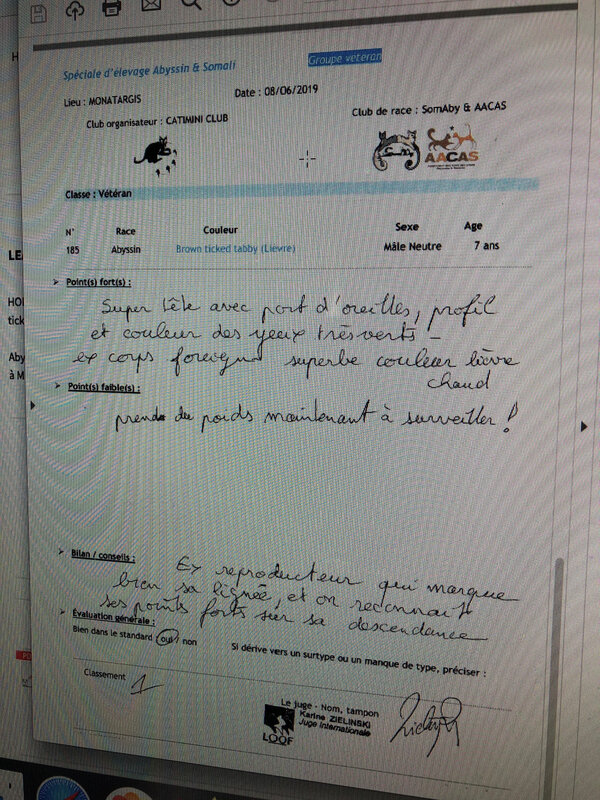 Spéciale d'élevage Abyssin & Somali
Groupe vétéran
Lieu : MONATARGIS
Date : 08/06/2019
Club organisateur : CATIMINI CLUB
Club de race : SomAby & AACAS
AACAS
Classe : Vétéran
N° Race Couleur Sexe Age
185 Abyssin Brown ticked tabby (Lievre) Mâle Neutre 7 ans
LE
HO
tick
Aby
à M
Point(s) fort(s) :
Super tête avec port d'oreilles, profil
et couleur des yeux très verts -
ex corps foreign superbe couleur lièvre
chaud
Point(s) faible(s) :
prend du poids maintenant à surveiller !
Bilan / conseils :
Ex reproducteur qui marque
bien sa lignée, et on reconnait
ses points forts sur sa descendance
Évaluation générale :
Bien dans le standard : oui / non
Si dérive vers un surtype ou un manque de type, préciser :
Classement 1
Le juge - Nom, tampon
Karine ZIELINSKI
Juge Internationale
LOOF